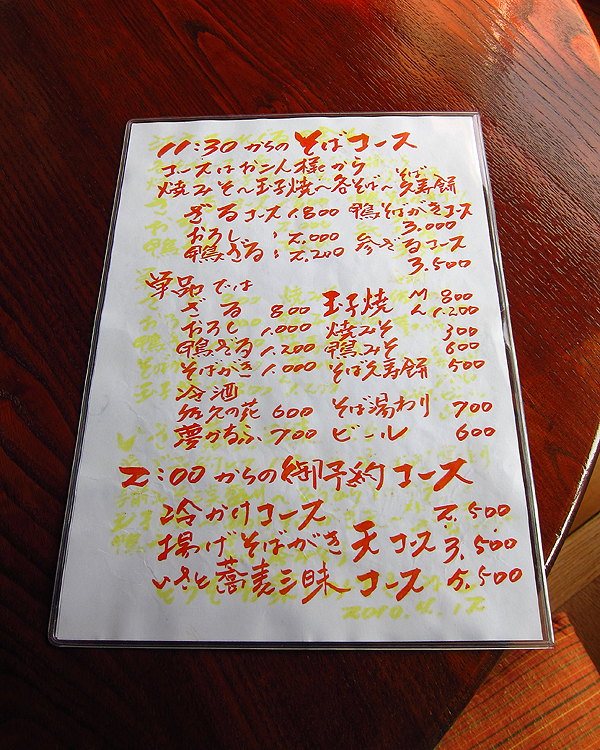 11:30からのそばコース
コースはお二人様から
焼みそ〜玉子焼〜各そば〜そば久寿餅
ざるコース 1.800 鴨そばがきコース
おろし : 2,000 3.000
鴨ざる : 2.200 参ざるコース
3.500
単品では
ざる 800 玉子焼 M 800
おろし 1.000 L 1.200
鴨ざる 1.200 焼みそ 300
そばがき 1.000 鴨みそ 600
冷酒 そば久寿餅 500
佐久の花 600 そば湯わり 700
夢かなふ 700 ビール 600
2:00からの御予約コース
冷かけコース 2.500
揚げそばがき天コース 3,500
いさと蕎麦三昧コース 5,500
2010.4.12